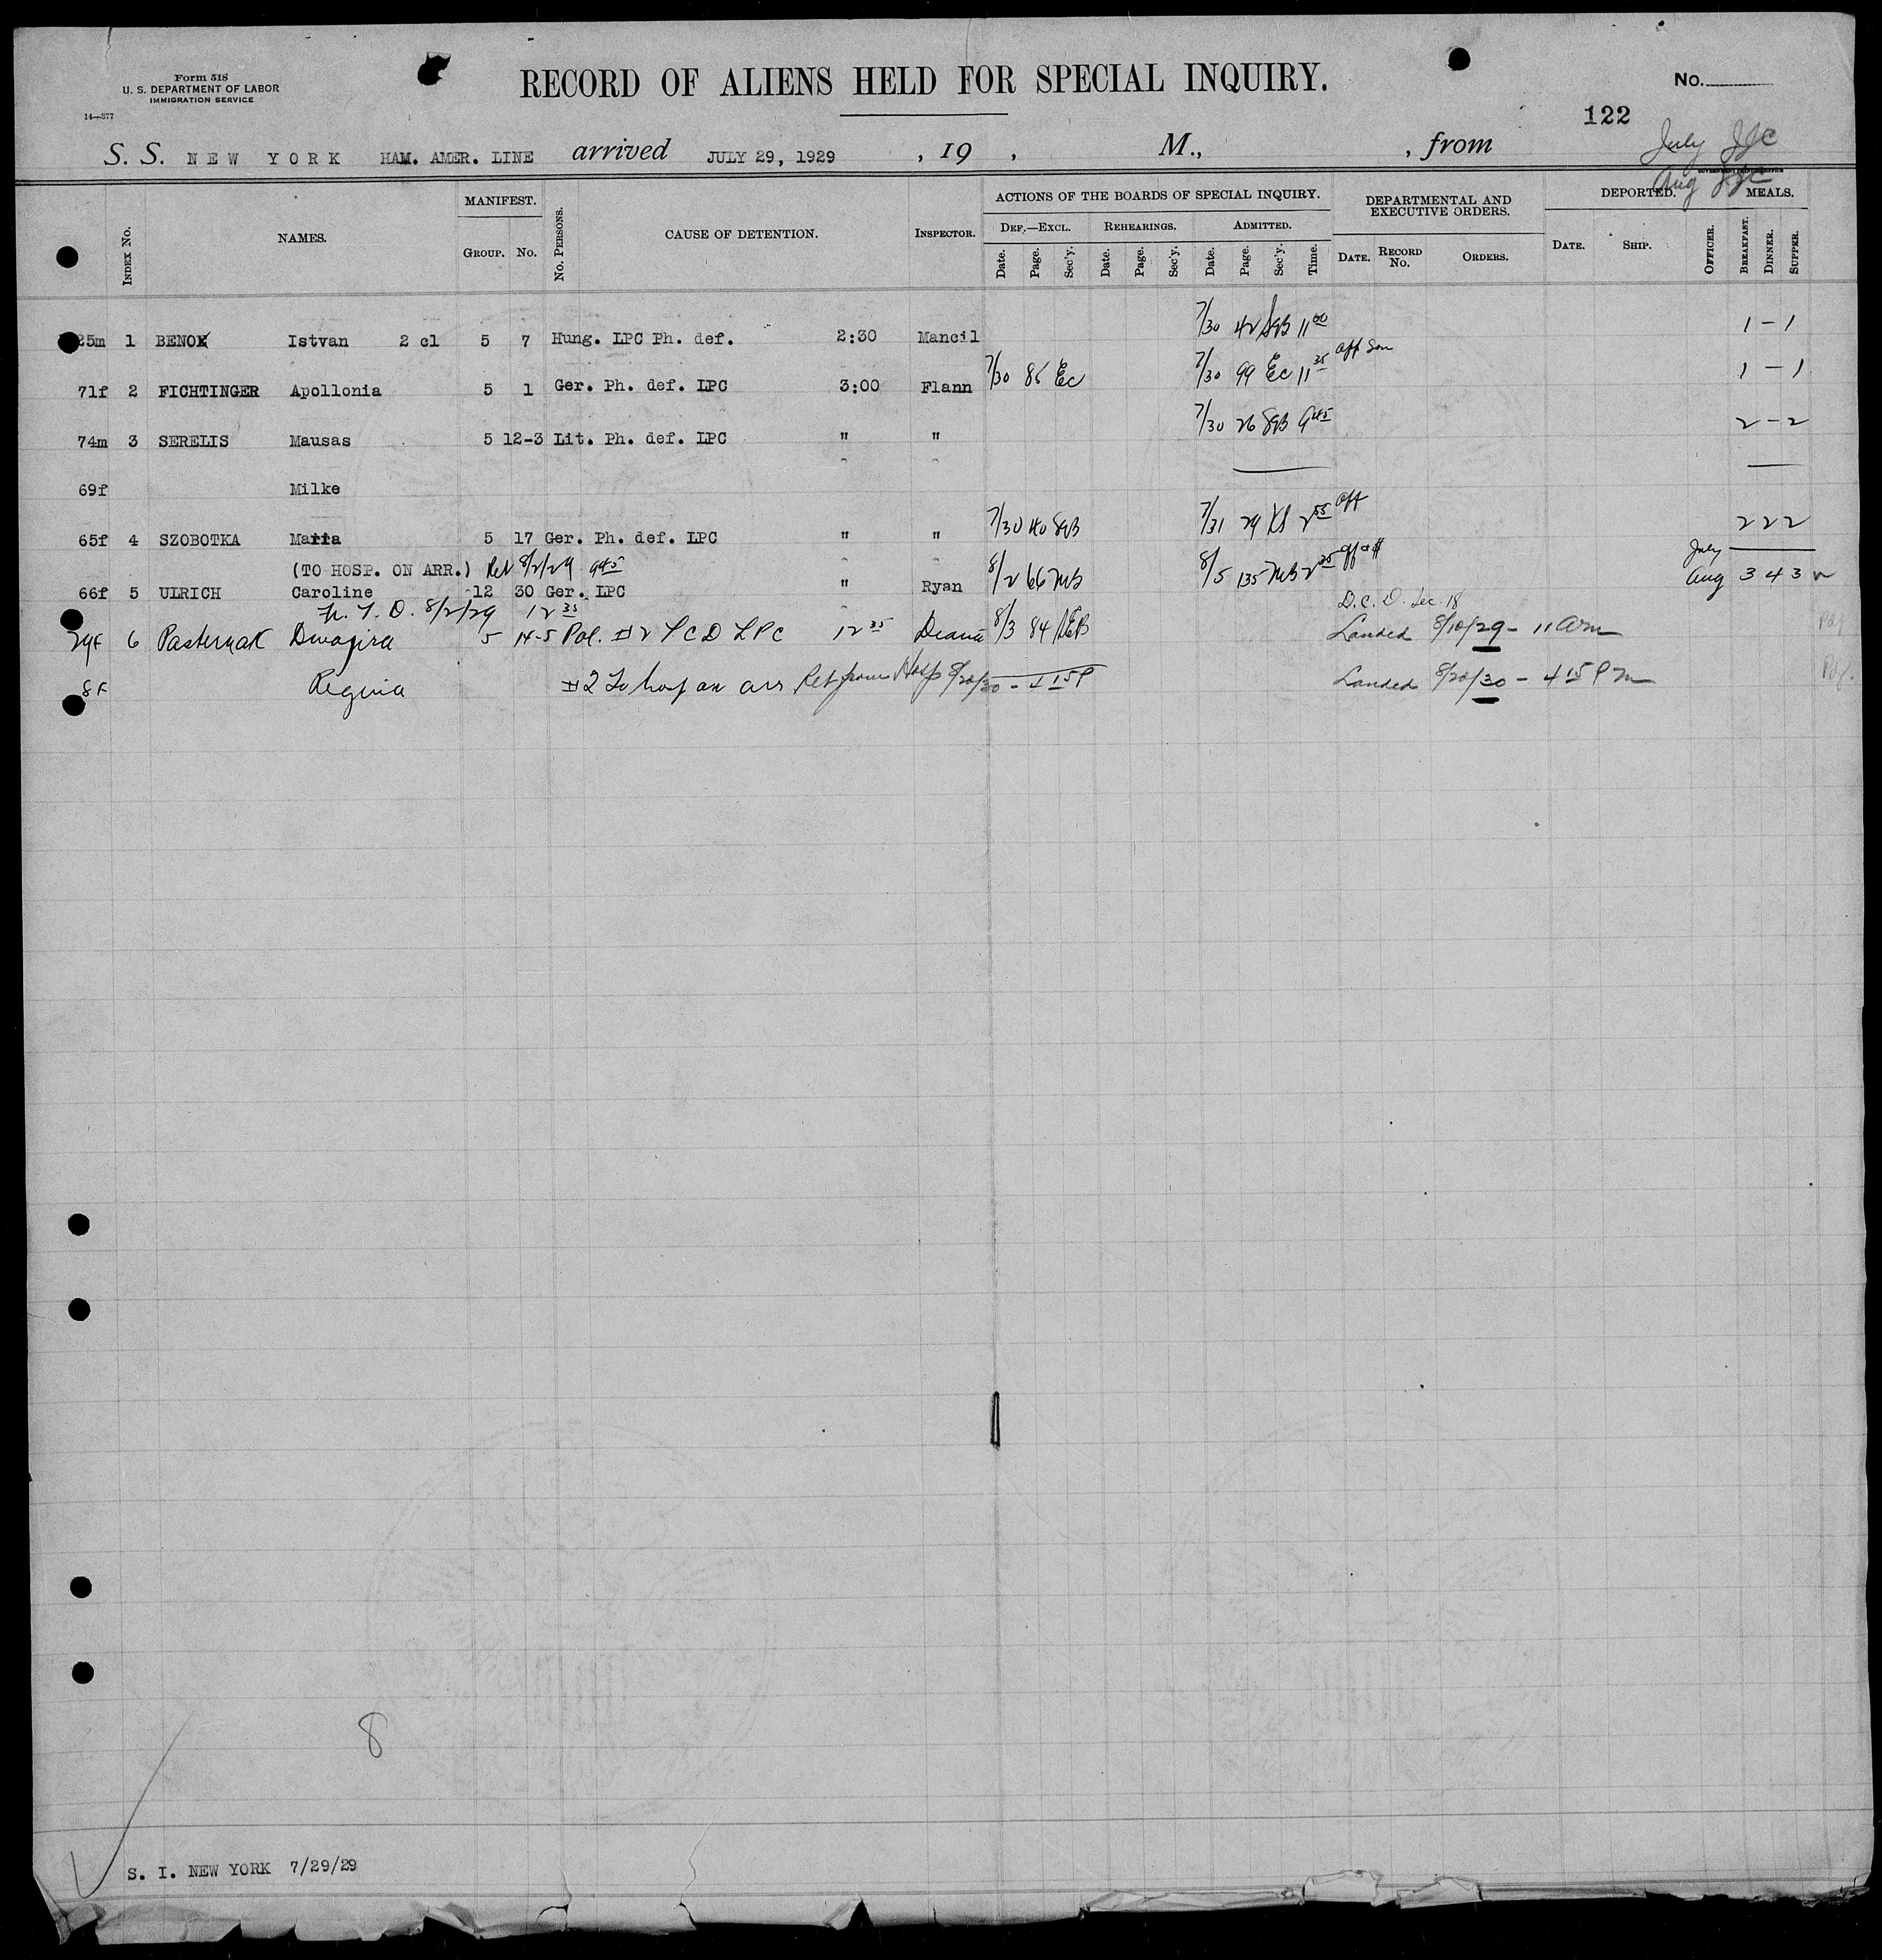 Form 518
U. S. DEPARTMENT OF LABOR
IMMIGRATION SERVICE
14—377
RECORD OF ALIENS HELD FOR SPECIAL INQUIRY.
No.
122
S. S. NEW YORK HAM. AMER. LINE arrived JULY 29, 1929 , 19 , M., , from
July JJC
Aug JJC
INDEX No. NAMES. MANIFEST. GROUP. No. No. PERSONS. CAUSE OF DETENTION. INSPECTOR.
ACTIONS OF THE BOARDS OF SPECIAL INQUIRY.
DEF.—EXCL. REHEARINGS. ADMITTED.
Date. Page. Sec'y. Date. Page. Sec'y. Date. Page. Sec'y. Time.
DEPARTMENTAL AND EXECUTIVE ORDERS.
DATE. RECORD No. ORDERS.
DEPORTED. DATE. SHIP. OFFICER.
MEALS. BREAKFAST. DINNER. SUPPER.
25m 1 BENO Istvan 2 cl 5 7 Hung. LPC Ph. def. 2:30 Mancil 7/30 42 SgB 11 00 1 – 1
71f 2 FICHTINGER Apollonia 5 1 Ger. Ph. def. LPC 3:00 Flann 7/30 85 Ec 7/30 99 Ec 11 35 aff son 1 – 1
74m 3 SERELIS Mausas 5 12-3 Lit. Ph. def. LPC " " 7/30 26 SgB 9 45 2 – 2
69f Milke
65f 4 SZOBOTKA Maria 5 17 Ger. Ph. def. LPC " " 7/30 40 SgB 7/31 29 2 55 aff July 2 2 2
(TO HOSP. ON ARR.) Ret 8/2/29 9 45
66f 5 ULRICH Caroline 12 30 Ger. LPC " Ryan 8/2 66 MB 8/5 135 MB 2 35 Aug 3 4 3
8/2/29 12 35
29f 6 Pasternak Dwojira 5 14-5 Pol. #2 LPC 12 35 Deana 8/3 84 D.C.O. Sec. 18 Landed 8/10/29 – 11 am
8f Regina #2 To hosp on arr Ret from Hosp 8/20/30 – 4 15 P Landed 8/20/30 – 4 15 P m
8
S. I. NEW YORK 7/29/29